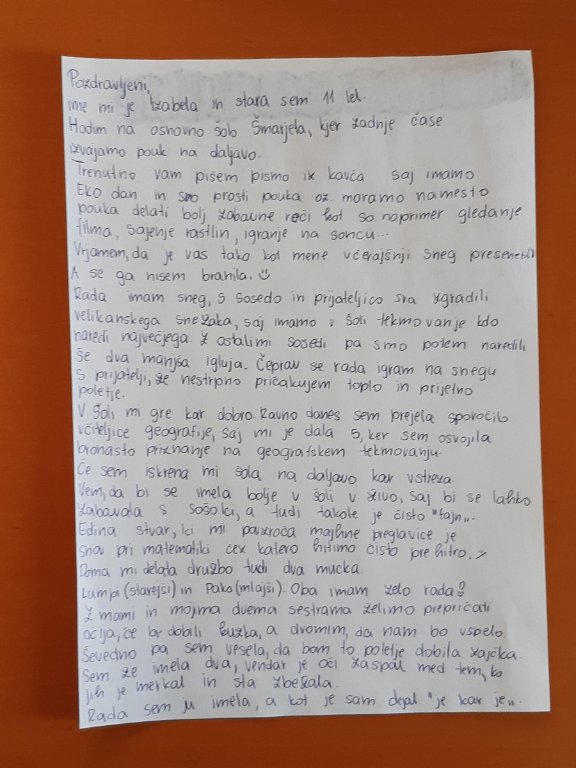 Pozdravljeni,
ime mi je Izabela in stara sem 11 let.
Hodim na osnovno šolo Šmarjeta, kjer zadnje čase
izvajamo pouk na daljavo.
Trenutno vam pišem pismo iz kavča saj imamo
Eko dan in smo prosti pouka oz. moramo namesto
pouka delati bolj zabavne reči kot so naprimer gledanje
filma, sajenje rastlin, igranje na soncu...
Vrjamem, da je vas tako kot mene včerajšnji sneg presenetil.
A se ga nisem branila. ☺
Rada imam sneg, s sosedo in prijateljico sva zgradili
velikanskega snežaka, saj imamo v šoli tekmovanje kdo
naredi največjega. Z ostalimi sosedi pa smo potem naredili
še dva manjša igluja. Čeprav se rada igram na snegu
s prijatelji, že nestrpno pričakujem toplo in prijetno
poletje.
V šoli mi gre kar dobro. Ravno danes sem prejela sporočilo
učiteljice geografije, saj mi je dala 5, ker sem osvojila
bronasto priznanje na geografskem tekmovanju.
Če sem iskrena mi šola na daljavo kar ustreza.
Vem, da bi se imela bolje v šoli v živo, saj bi se lahko
zabavala s sošolci, a tudi takole je čisto "fajn„.
Edina stvar, ki mi povzroča majhne preglavice je
snov pri matematiki čez katero hitimo čisto prehitro.
Doma mi delata družbo tudi dva mucka.
Lumpi (starejši) in Pako (mlajši). Oba imam zelo rada
Z mami in mojima dvema sestrama želimo prepričati
očija, če bi dobili kužka, a dvomim, da nam bo uspelo.
Sevedno pa sem vesela, da bom to poletje dobila zajčka.
Sem že imela dva, vendar je oči zaspal med tem, ko
jih je merkal in sta zbežala.
Rada sem ju imela, a kot je sam dejal "je kar je„.